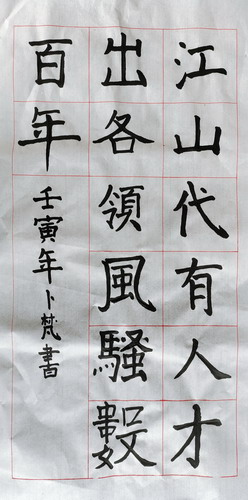 江山代有人才
出各領風騷數
百年
壬寅年卜梵書